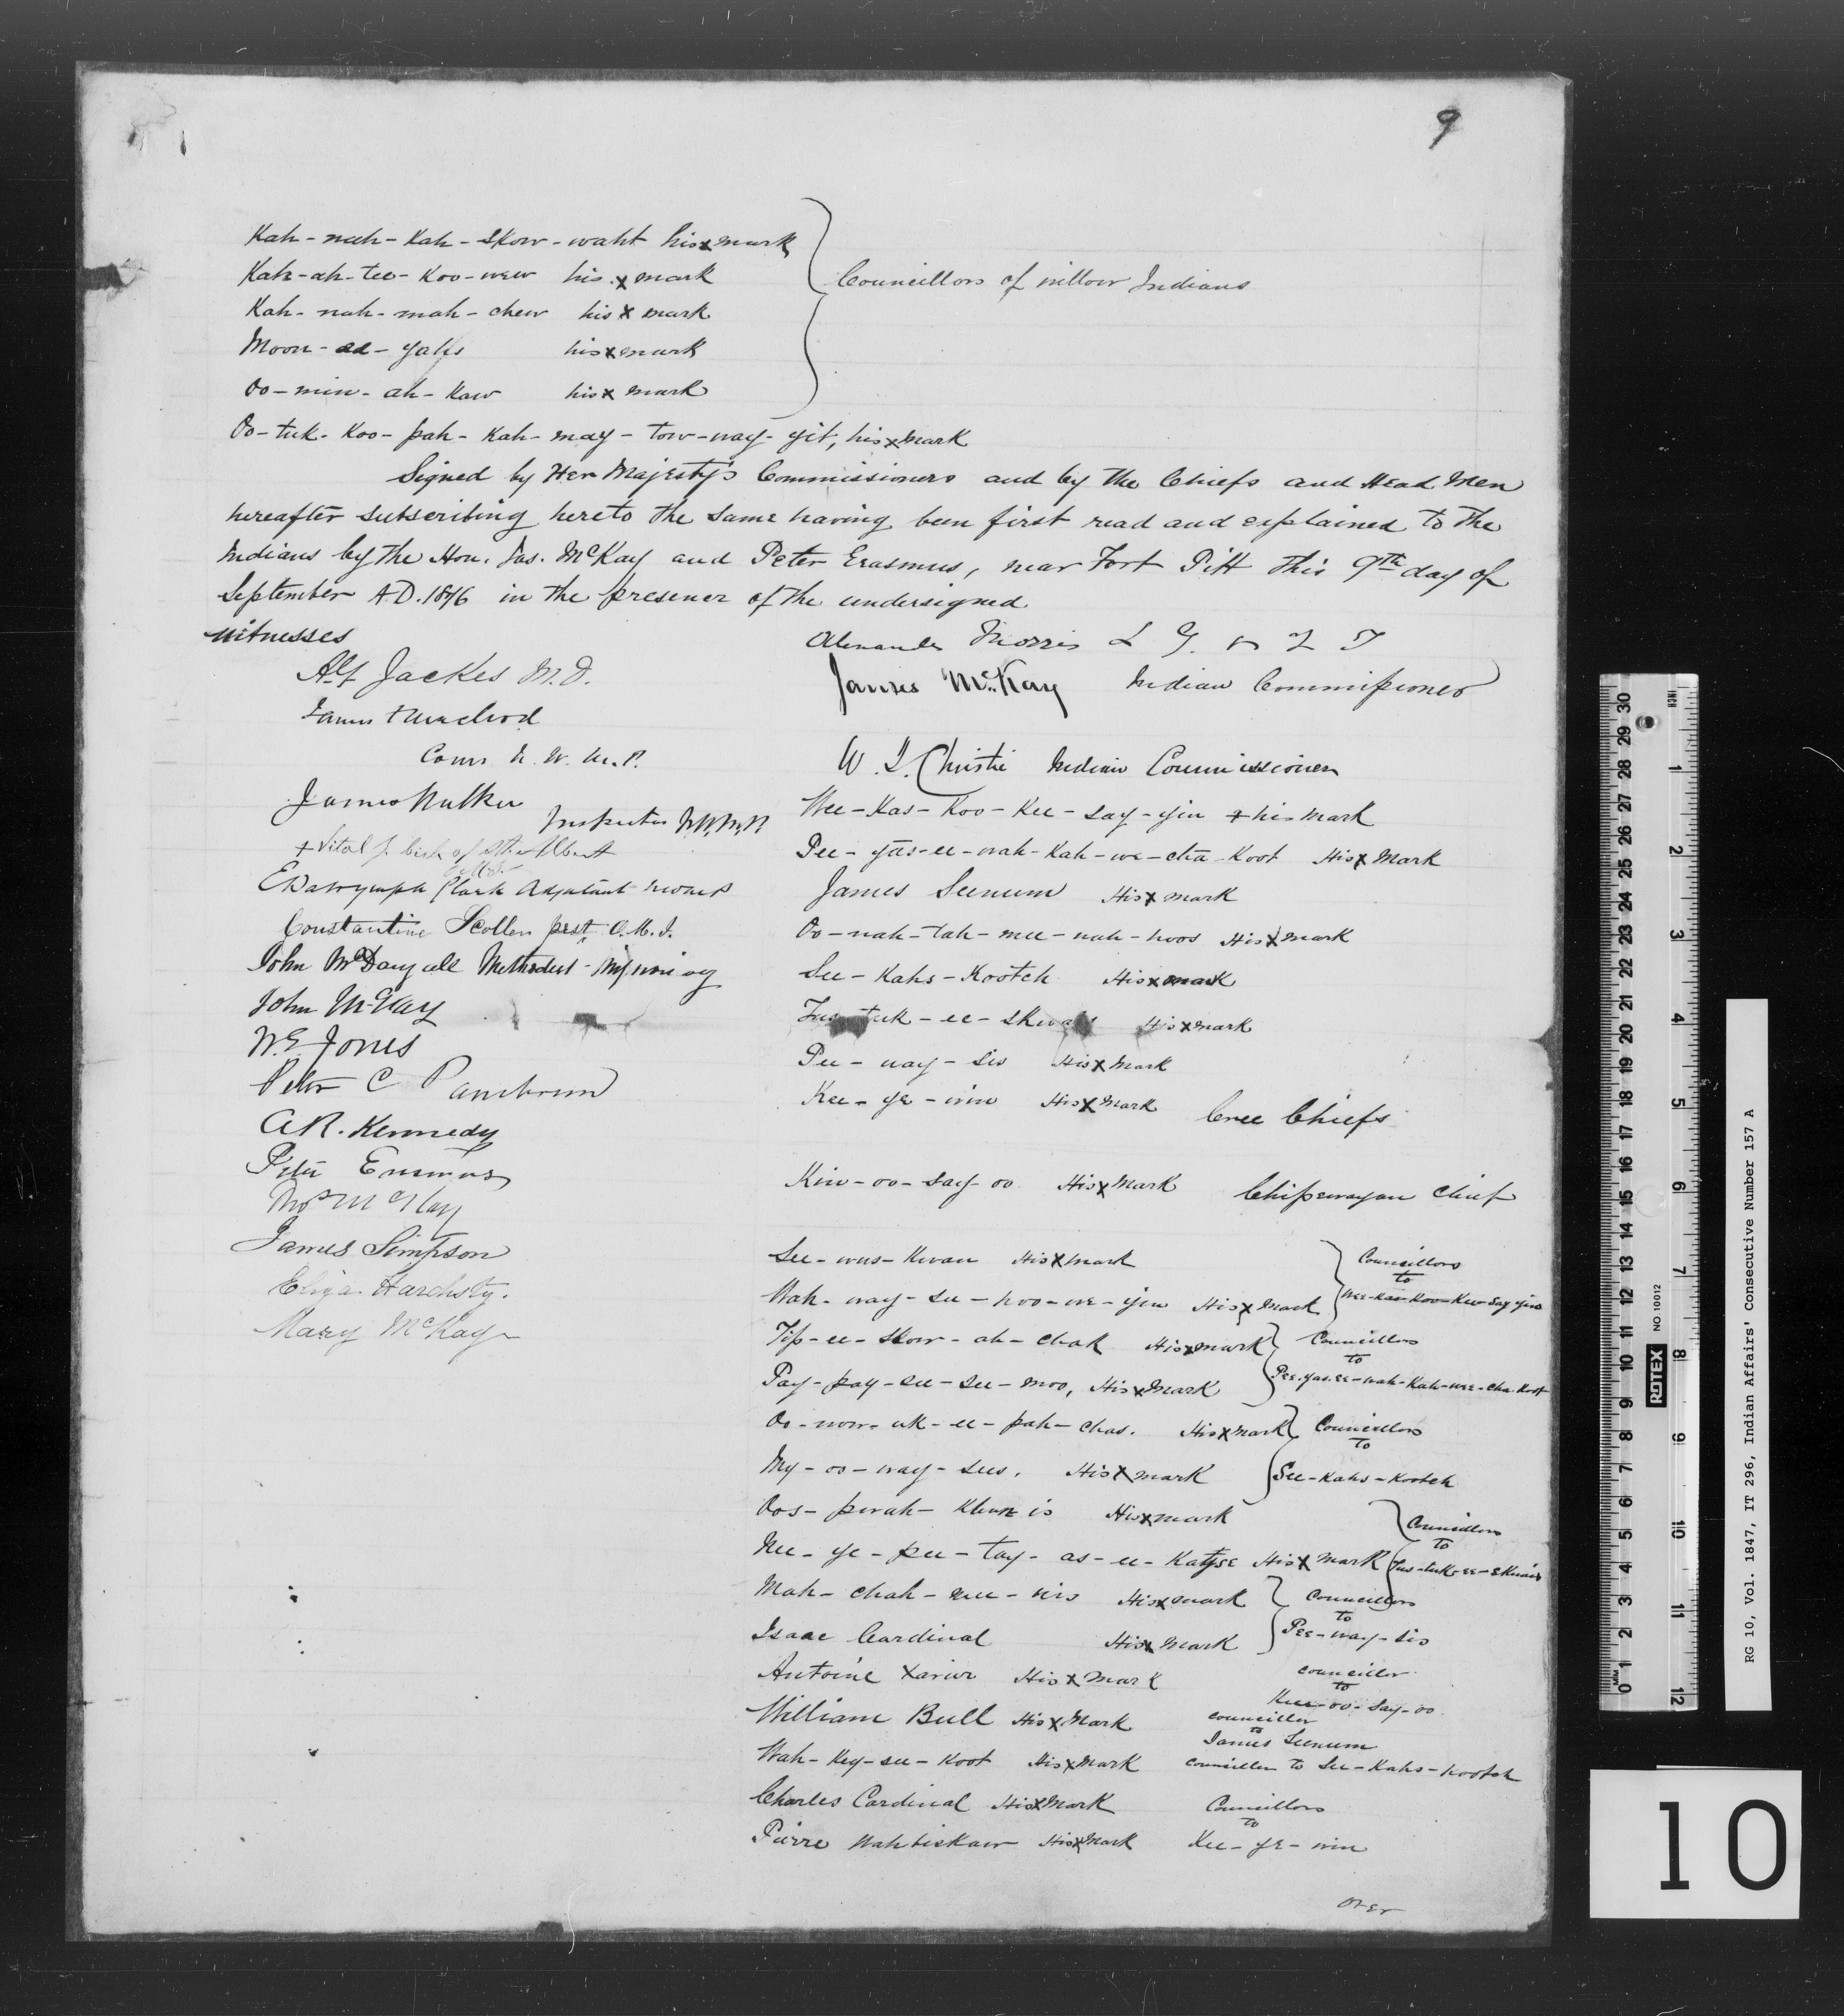 9
Kah-nah-kah-skow-waht his x mark
Kah-ah-tee-koo-wew his x mark
Kah-nah-mah-chew his x mark
Moon-ad-yahs his x mark
Oo-min-ah-kaw his x mark
Councillors of willow Indians
Oo-tuk-koo-pah-kah-may-tow-way-yit, his x mark
Signed by Her Majesty's Commissioners and by the Chiefs and Head Men
hereafter subscribing hereto the same having been first read and explained to the
Indians by the Hon. Jas. McKay and Peter Erasmus, near Fort Pitt this 9th day of
September A.D. 1876 in the presence of the undersigned
witnesses
Alf Jackes M.D.
James F Macleod
Comr N. W. M. P.
James Walker
Inspector N.W.M.P.
+ Vital J. bish of St. Albert
O.M.I.
E Dalrymple Clark Adjutant NWMP
Constantine Scollen pest O.M.I.
John McDougall Methodist Missionary
John McKay
W.E. Jones
Peter C Pambrun
A.R. Kennedy
Peter Erasmus
Thos McKay
James Simpson
Eliza Hardisty.
Mary McKay
Alexander Morris L G. N W T
James McKay Indian Commissioner
W. J. Christie Indian Commissioner
Wee-Kas-Koo-Kee-say-yin + his mark
Pee-yas-ee-wah-Kah-we-cha-Koot His x Mark
James Seenum His x mark
Oo-nah-tah-mee-nah-hoos His x mark
See-Kahs-Kootch His x mark
Tus-tuk-ee-skwais His x mark
Pee-way-sis His x Mark
Kee-ye-win His x Mark Cree Chiefs
Kin-oo-say-oo His x Mark Chipewayan Chief
See-wus-Kwan His x mark
Wah-way-see-hoo-we-yin His x Mark
Councillors
to
Wee-Kas-Koo-Kee-Say-yin
Tip-ee-skow-ah-chak His x mark
Pay-pay-see-see-moo, His x Mark
Councillors
to
Pee-yas-ee-wah-Kah-wee-cha-Koot
Oo-now-uk-ee-pah-chas. His x Mark
My-oo-way-sees. His x mark
Councillors
to
See-Kahs-Kootch
Oos-pwah-Khun is His x mark
Nee-ye-pee-tay-as-ee-Kayse His x mark
Councillors
to
Tus-tuk-ee-Skwais
Mah-chah-mee-nis His x mark
Isaac Cardinal His x Mark
Councillors
to
Pee-way-sis
Antoine Xavier His x Mark
councillor
to
Kin-oo-Say-oo
William Bull His x Mark
councillor
to
James Seenum
Wah-Key-see-Koot His x Mark councillor to See-Kahs-Kootch
Charles Cardinal His x Mark Councillors
to
Pierre Wahbiskaw His x Mark Kee-ye-win
over
10
RG 10, Vol. 1847, IT 296, Indian Affairs' Consecutive Number 157 A
ROTEX NO. 10012
INCH 1 2 3 4 5 6 7 8 9 10 11 12
MM 0 1 2 3 4 5 6 7 8 9 10 11 12 13 14 15 16 17 18 19 20 21 22 23 24 25 26 27 28 29 30